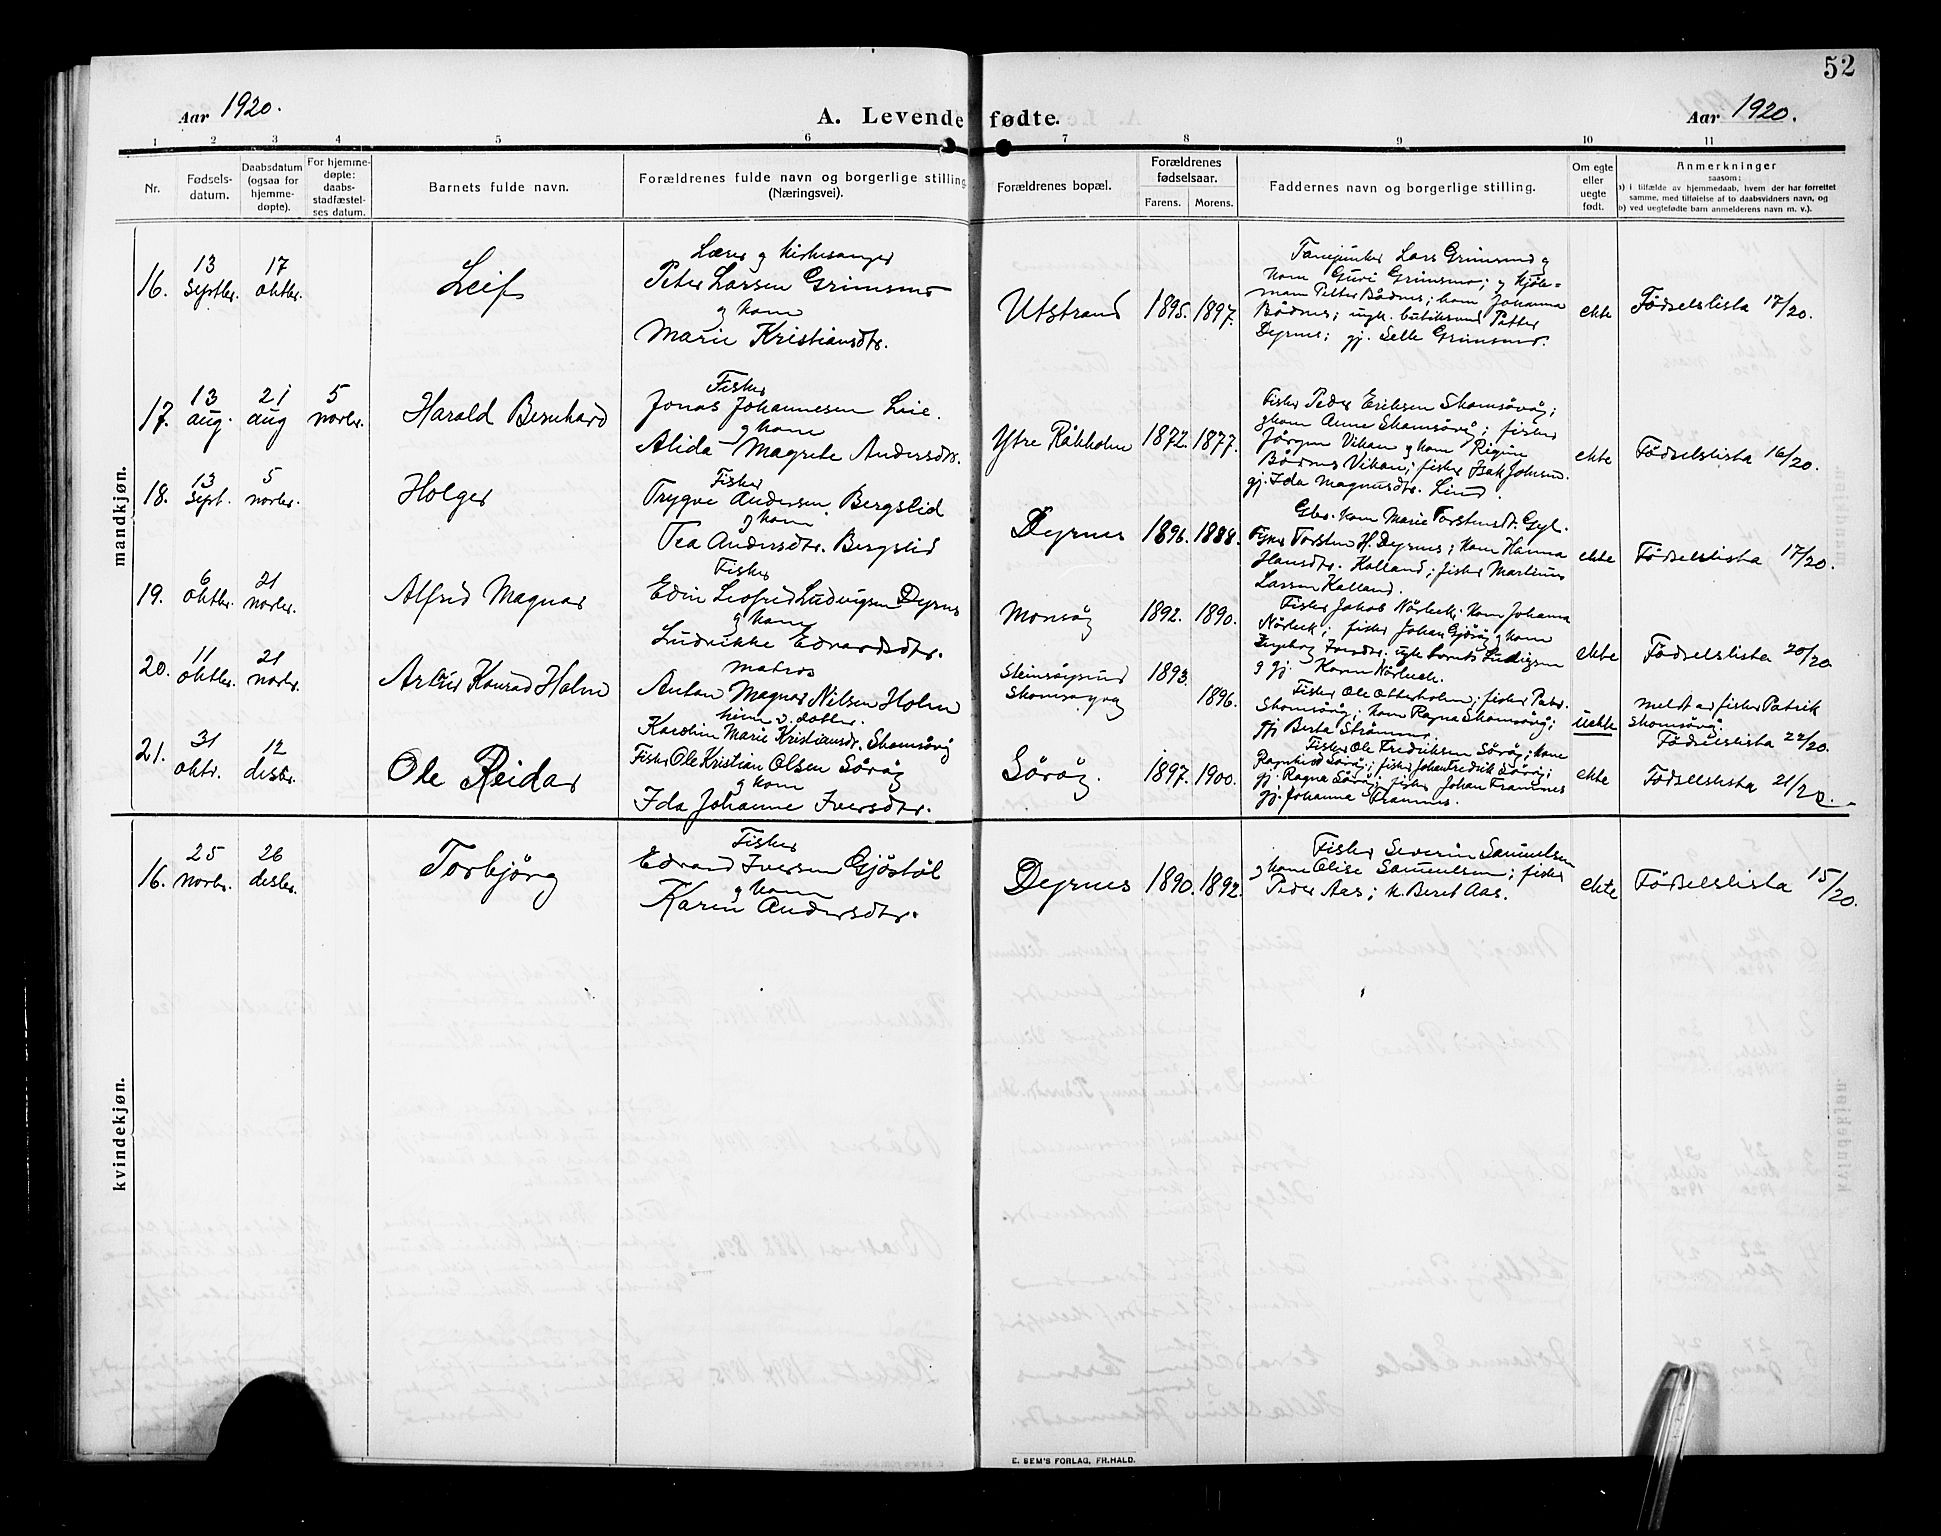 52
Aar 1920.
A. Levende fødte.
Aar 1920.
1 2 3 4 5 6 7 8 9 10 11
Nr.
Fødsels-
datum.
Daabsdatum
(ogsaa for
hjemme-
døpte).
For hjemme-
døpte:
daabs-
stadfæstel-
ses datum.
Barnets fulde navn.
Forældrenes fulde navn og borgerlige stilling
(Næringsvei).
Forældrenes bopæl.
Forældrenes
fødselsaar.
Farens. Morens.
Faddernes navn og borgerlige stilling.
Om egte
eller
uegte
født.
Anmerkninger
saasom:
a) i tilfælde av hjemmedaab, hvem der har forrettet
samme, med tilføielse af to daabsvidners navn, og
b) ved uegtefødte barn anmelderens navn m. v.).
mandkjøn.
16.
13
Septbr.
17
oktbr.
Leif
Lærer og kirkesanger
Peter Larsen Grimsmo
og kone
Marie Kristiansdtr.
Utstrand
1895. 1897.
Lars Grimsmo og
kone Guri Grimsmo; og
Petter Bådnes; kone Johanna
Bådnes; ugk. Petter
Dyrnes; gj. Selle Grimsmo.
ekte
Fødselslista 17/20.
17.
13
aug.
21
aug
5
novbr.
Harald Bernhard
Fisker
Jonas Johannesen Lie.
og kone
Alida Magrete Andersdtr.
Ytre Råkholm
1872. 1877.
Fisker Peder Eriksen Skomsøvåg;
og kone Anne Skomsøvåg; fisker
Jørgen Vikan og kone Regine
Bådnes Vikan; fisker Isak Johnsen.
gj. Ida Magnusdtr. Lind.
ekte
Fødselslista 16/20.
18.
13
Sept.
5
novbr.
Holger
Fisker
Trygve Andersen Bergslid
og kone
Tea Andersdtr. Bergslid
Dyrnes
1896. 1888.
Gbr. kone Marie Torstensdtr.
Fisker Torsten H. Dyrnes; kone Hanna
Hansdtr. Kalland; fisker Martinus
Larsen Kalland.
ekte
Fødselslista 17/20.
19.
6
oktbr.
21
novbr.
Alfrid Magnar
Fisker
Edin Leofrid Ludvigsen Dyrnes
og kone
Ludvikke Edvardsdtr.
Monsøy
1892. 1890.
Fisker Jakob Nørbeck; kone Johanna
Nørbeck; fisker Johan og kone
Ingeborg
og gj. Karen Nørbeck.
ekte
Fødselslista 20/20
20.
11
oktbr.
21
novbr.
Konrad Holm
matros
Anton Magnar Nilsen Holm
heim. v. dotter.
Karoline Marie Kristiansdr. Skomsøvåg
Steinsøysund
1893.
1896.
Fisker Ole Otterholm; fisker Patr.
Skomsøvåg; kone Ragna Skomsøvåg;
gj. Berta Strømmen.
uekte
meldt av fisker Patrik
Skomsøvåg.
Fødselslista 22/20.
21.
31
oktr.
12
desbr.
Ole Reidar
Fisker Ole Kristian Olsen Sørøy
og kone
Ida Johanne Iversdtr.
Sørøy.
1897. 1900.
Fisker Ole Fredriksen Sørøy; kone
Ragnhild Sørøy; fisker Johan Fredrik Sørøy;
gj. Ragna Sørøy; fisker Johan Framnes
gj. Johanna Framnes.
ekte
Fødselslista 21/20.
kvindekjøn.
16.
25
novbr.
26
desbr.
Torbjørg
Fisker
Edvard Iversen Gjøstøl
og kone
Karen Andersdtr.
Dyrnes
1890. 1892.
Fisker Severin Samuelsen
og kone Olise Samuelsen; fisker
Peder Aas; k. Beret Aas.
ekte
Fødselslista 15/20.
E. SEM'S FORLAG, FR.HALD.